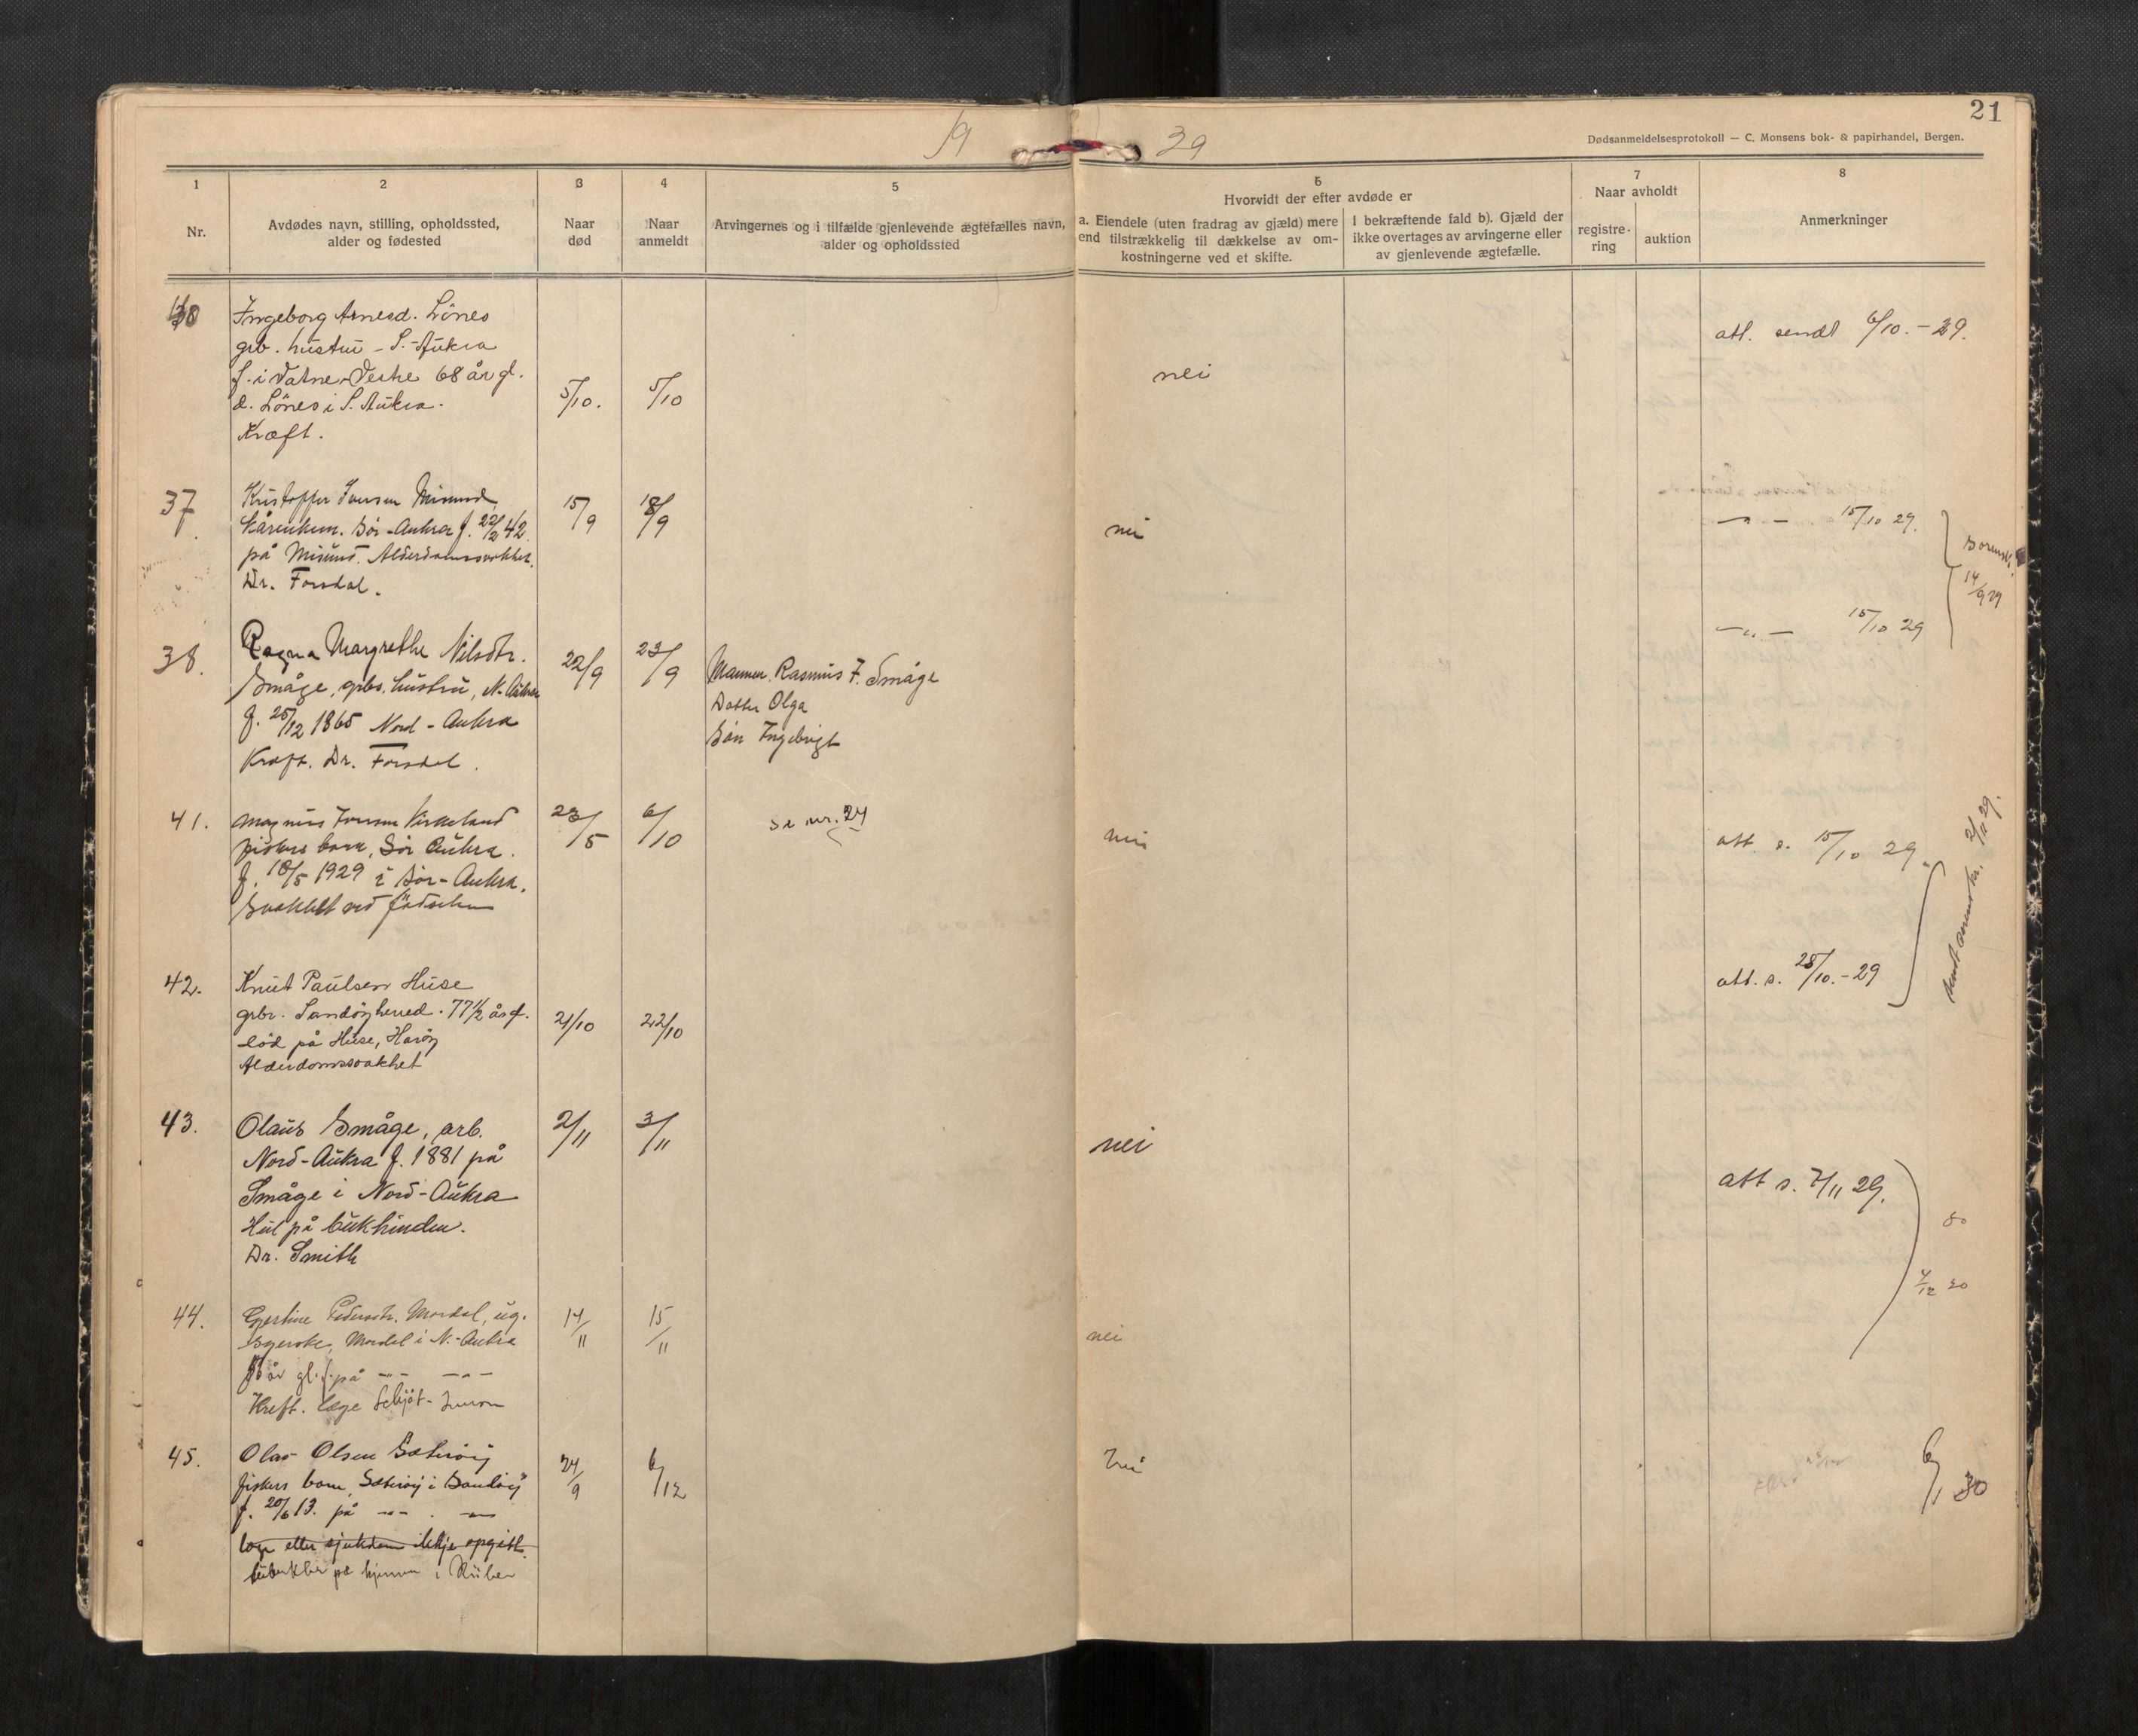 21
19
29
Dødsanmeldelsesprotokoll — C. Monsens bok- & papirhandel, Bergen.
1
2
3
4
5
6
7
8
Nr.
Avdødes navn, stilling, opholdssted,
alder og fødested
Naar
død
Naar
anmeldt
Arvingernes og i tilfælde gjenlevende ægtefælles navn,
alder og opholdssted
Hvorvidt der efter avdøde er
a. Eiendele (uten fradrag av gjæld) mere
end tilstrækkelig til dækkelse av om-
kostningerne ved et skifte.
I bekræftende fald b). Gjæld der
ikke overtages av arvingerne eller
av gjenlevende ægtefælle.
Naar avholdt
registre-
ring
auktion
Anmerkninger
Ingeborg Arnesd. Lönes
grb. hustru - S.-Aukra
f. i Vatne, Vestre 68 år gl.
d. Lönes i S. Aukra.
Kræft.
5/10.
5/10
nei
att. sendt 6/10. - 29.
37.
Kristoffer Iversen Misund
Kårenkem. Sör-Aukra f. 22/2 42
på Misund. Alderdomssvakhet.
Dr. Forsdal.
15/9
18/9
nei
— " — 15/10 29.
14/9 29
38.
Ragna Margrethe Nilsdtr.
Småge, grbs. hustru, N-Aukra
f. 25/12 1865 Nord-Aukra
Kræft. Dr. Forsdal.
22/9
23/9
Mannen Rasmus F. Småge
Dotter Olga
Sön Ingebrigt
— " — 15/10 29
41.
Magnus Iversen Kirkeland
fiskers barn, Sör Aukra.
f. 18/5 1929 i Sör-Aukra.
Svakhet ved födselen
23/5
6/10
se nr. 24
nei
att. s. 15/10 29.
2/12 29.
42.
Knut Paulsen Huse
grbr. Sandöy herred. 77 1/2 år gl.
död på Huse, Haröy
Alderdomssvakhet
21/10
22/10
att. s. 28/10. - 29
43.
Olaus Småge, arb.
Nord-Aukra f. 1881 på
Småge i Nord-Aukra
Hul på bukhinden.
Dr. Smith
2/11
3/11
nei
att s. 7/11 29.
44.
Gjertine Pedersdtr. Mordal, ug.
syerske, Mordal i N.-Aukra
år gl. f. på — " — — " —
Kreft. læge Schjöt-Iversen
14/11
15/11
nei
45.
Olav Olsen Sæteröy
fiskers barn, Sæteröy i Sandöy
f. 20/6 13. på — " — . — " —
læge eller sjukdom ikkje opgitt.
tuberkler på hjernen i
24/9
6/12
nei
6/1 30